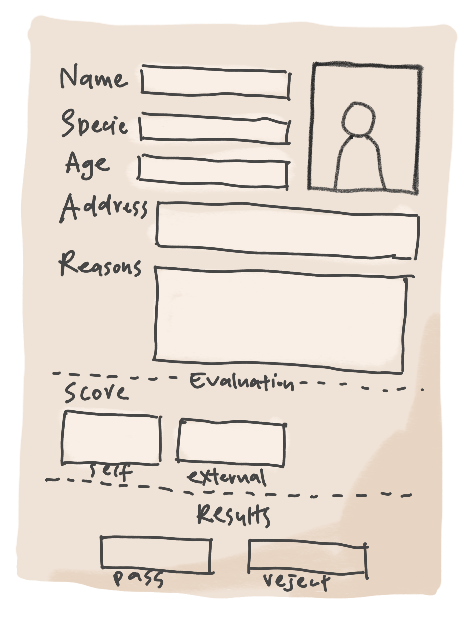 Name
Specie
Age
Address
Reasons
Evaluation
Score
self
external
Results
pass
reject